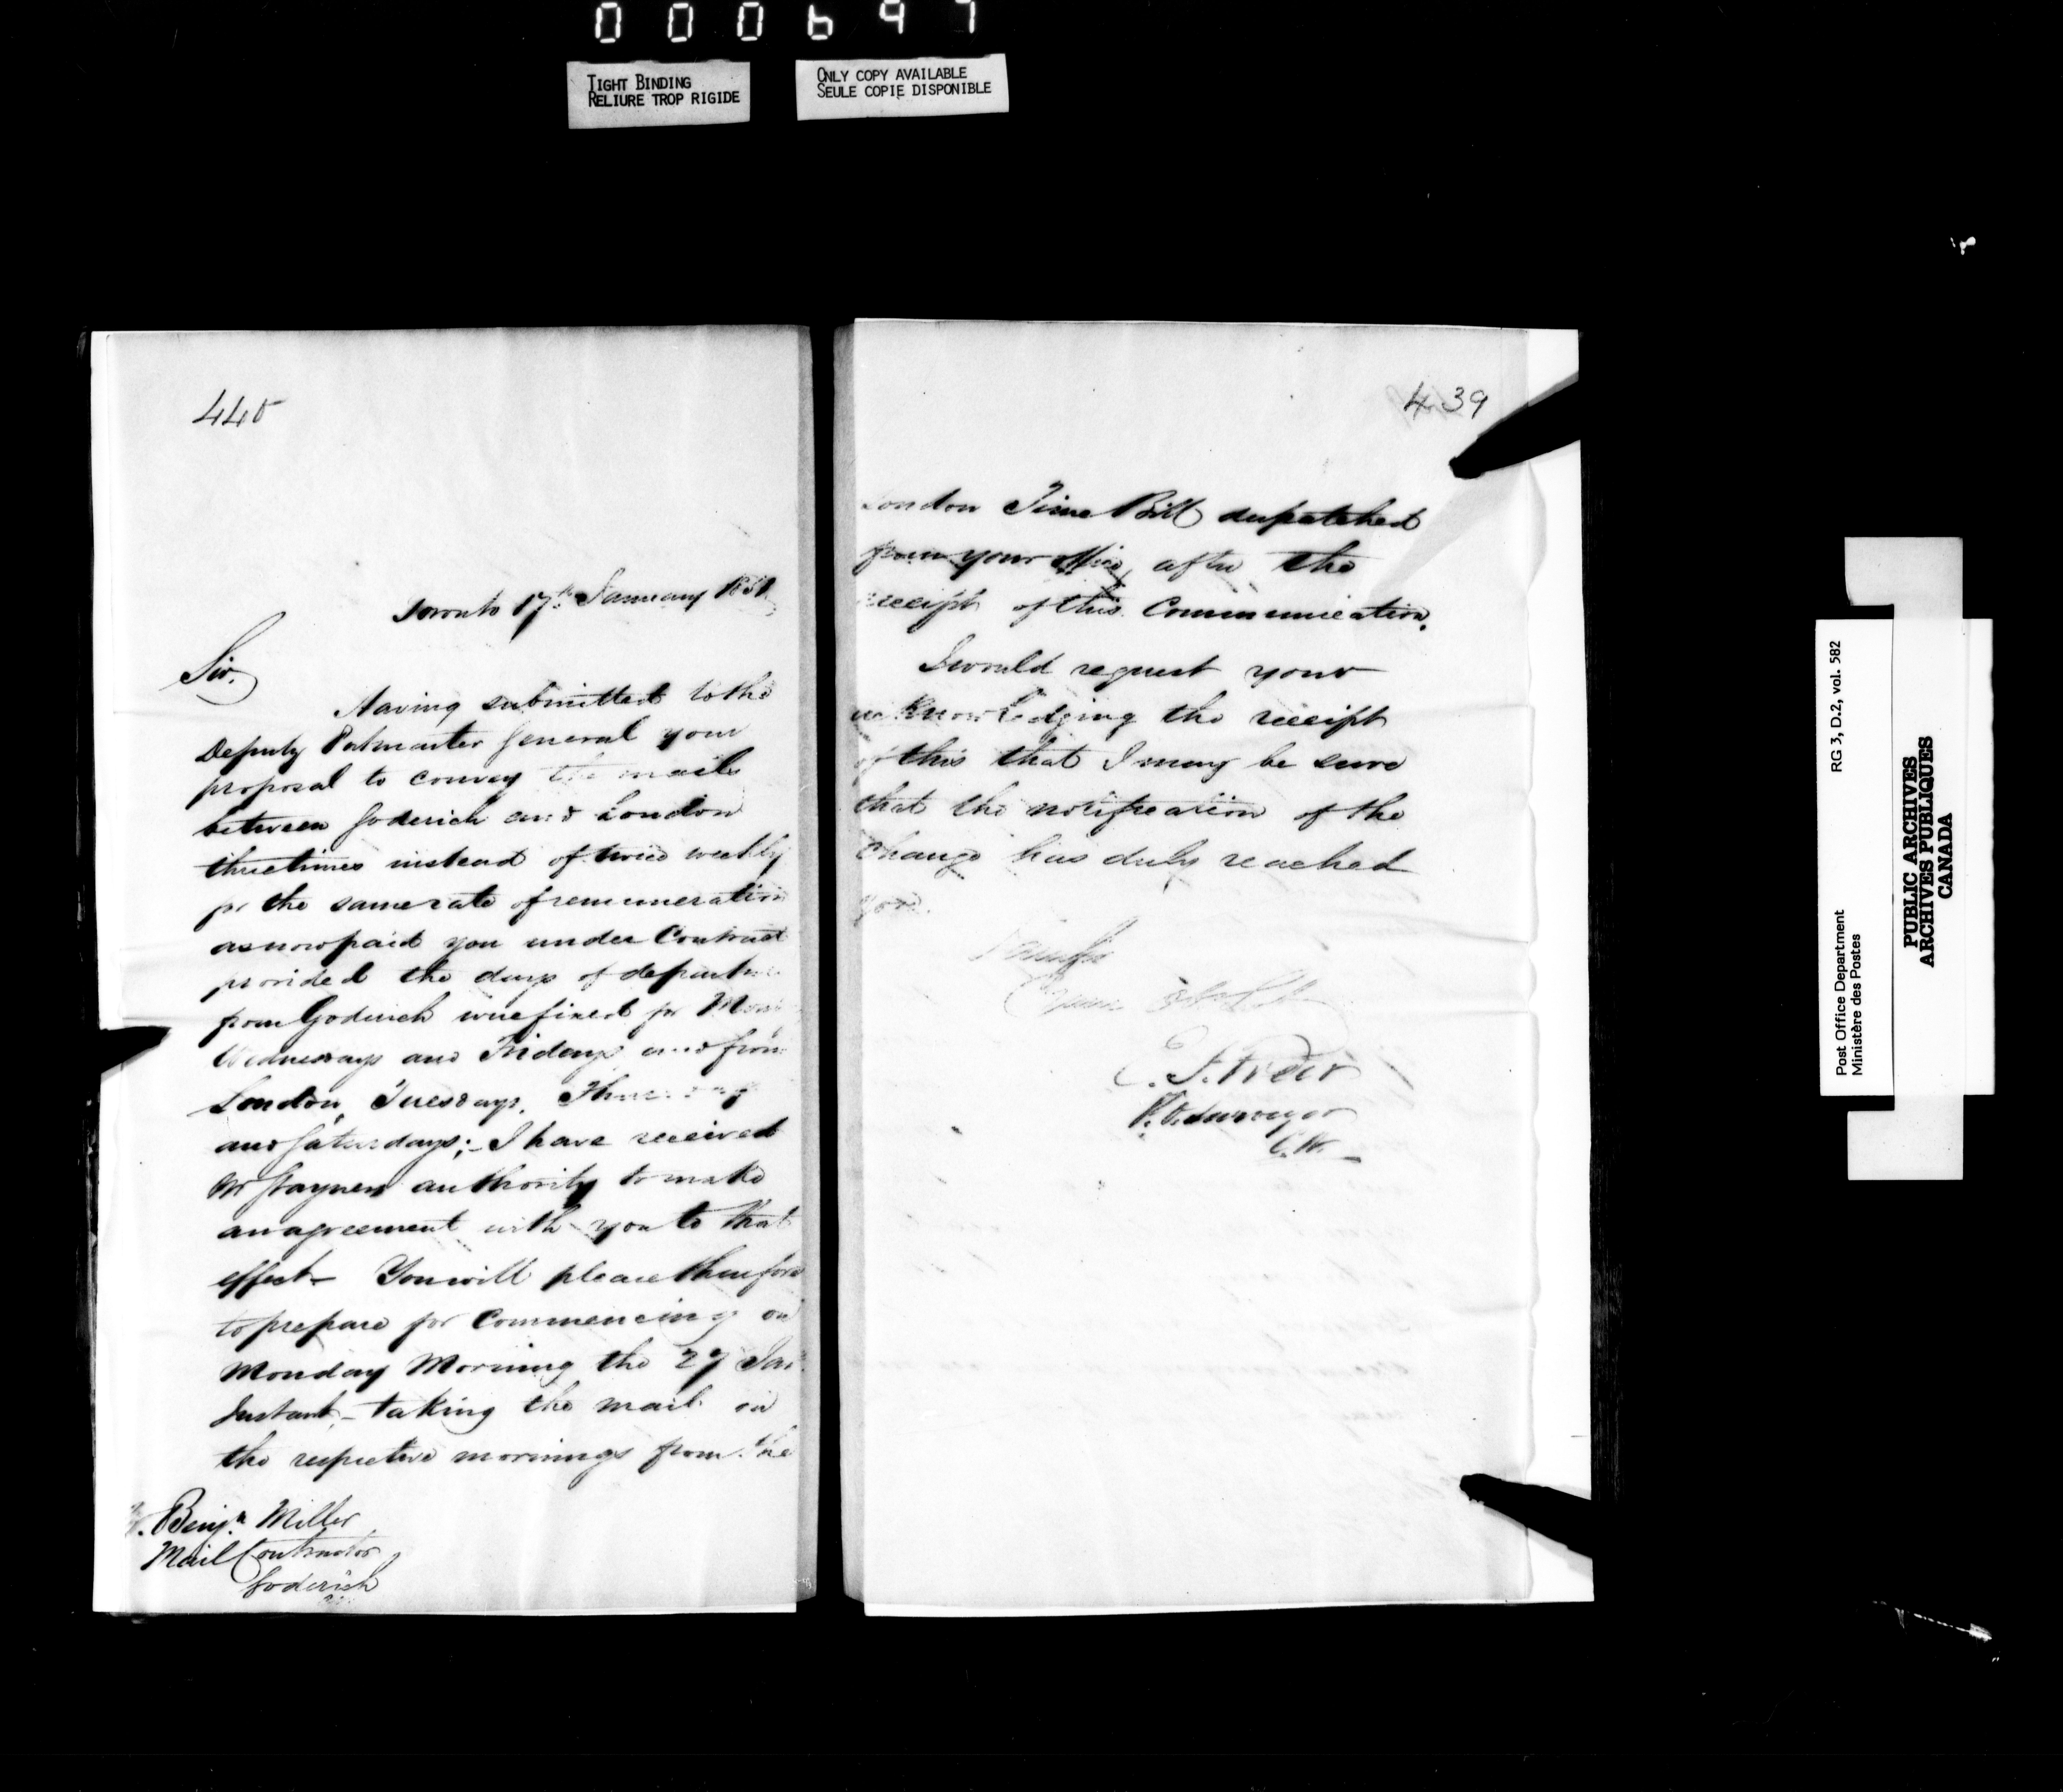 000697
TIGHT BINDING
RELIURE TROP RIGIDE
ONLY COPY AVAILABLE
SEULE COPIE DISPONIBLE
440
Toronto 17th January 1851
Sir,
Having submitted to the
Deputy Postmaster General your
proposal to convey the mails
between Goderich and London
three times instead of twice weekly
for the same rate of remuneration
as now paid you under Contract
provided the days of departure
from Goderich were fixed for
Wednesdays and Fridays and from
London, Tuesdays,
and Saturdays;- I have received
Mr Stayners authority to make
an agreement with you to that
effect- You will please therefore
to prepare for Commencing on
Monday Morning the 27 Jan.
Instant,- taking the mail on
the respective mornings from the
Benjn. Miller
Mail Contractor
Goderich
439
London Time Bill despatched
from your office, after the
receipt of this Communication.
I would request your
acknowledging the receipt
of this that I may be sure
that the notification of the
Change has duly reached
you.
I am Sir
E. S. Freer
P.O. Surveyor
C.W.
Post Office Department
Ministère des Postes
RG 3, D.2, vol. 582
PUBLIC ARCHIVES
ARCHIVES PUBLIQUES
CANADA